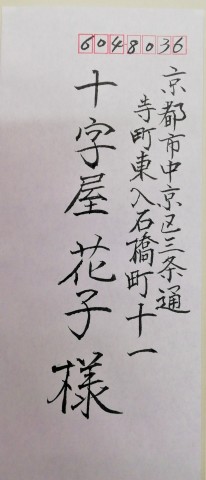 6048036
京都市中京区三条通
寺町東入石橋町十一
十字屋 花子 様